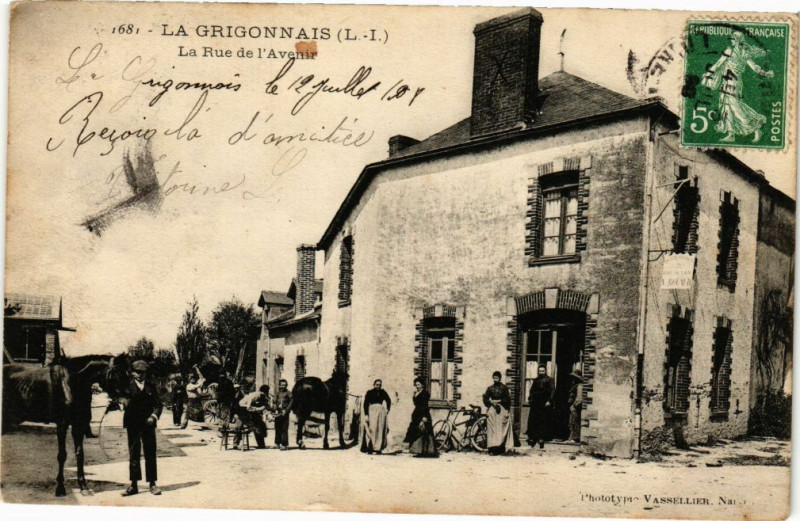 1681 - LA GRIGONNAIS (L.-I.)
La Rue de l'Avenir
La Grigonnais le 12 juillet 1908
Reçois là d'amitiée
RÉPUBLIQUE FRANÇAISE
5c
POSTES
Phototypie VASSELLIER, Nan